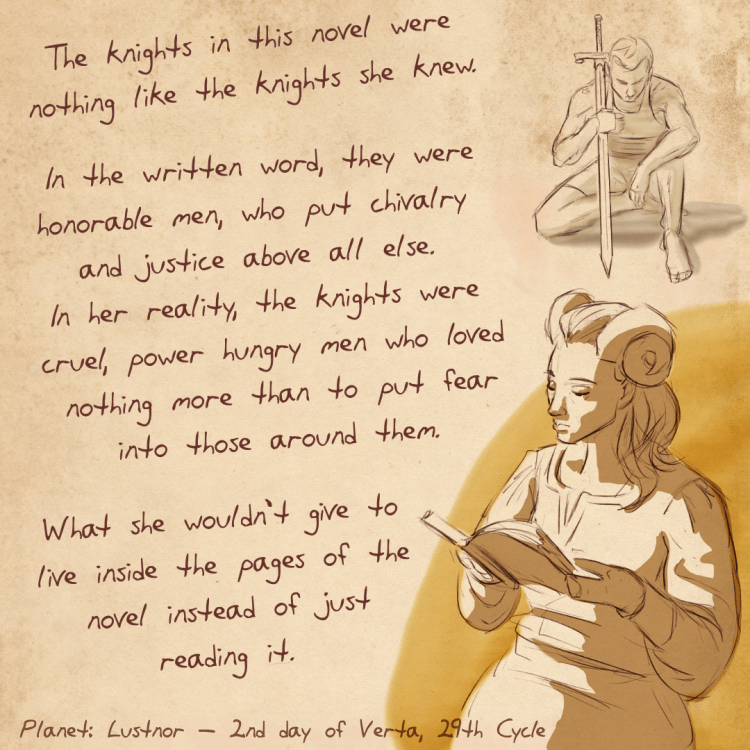 The knights in this novel were
nothing like the knights she knew.
In the written word, they were
honorable men, who put chivalry
and justice above all else.
In her reality, the knights were
cruel, power hungry men who loved
nothing more than to put fear
into those around them.
What she wouldn't give to
live inside the pages of the
novel instead of just
reading it.
Planet: Lustnor – 2nd day of Verta, 29th Cycle